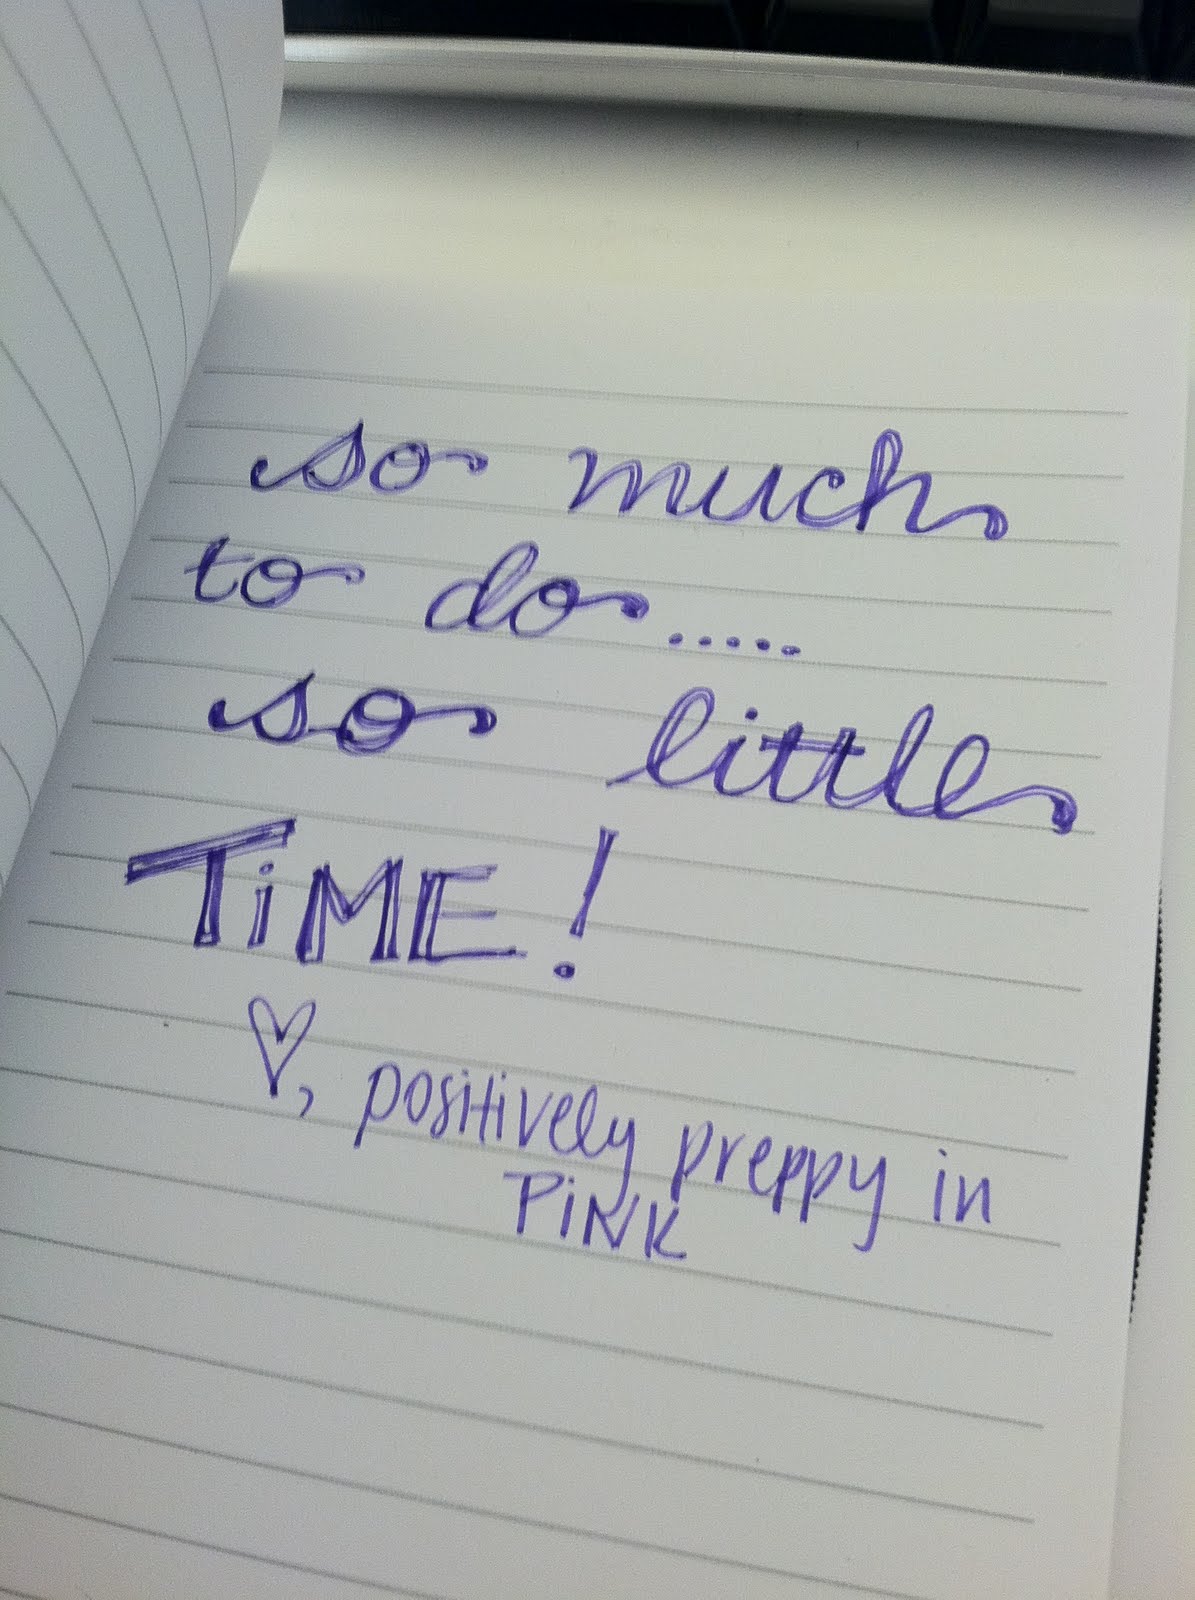 so much
to do.....
so little
TiME!
♡, positively preppy in
PiNK